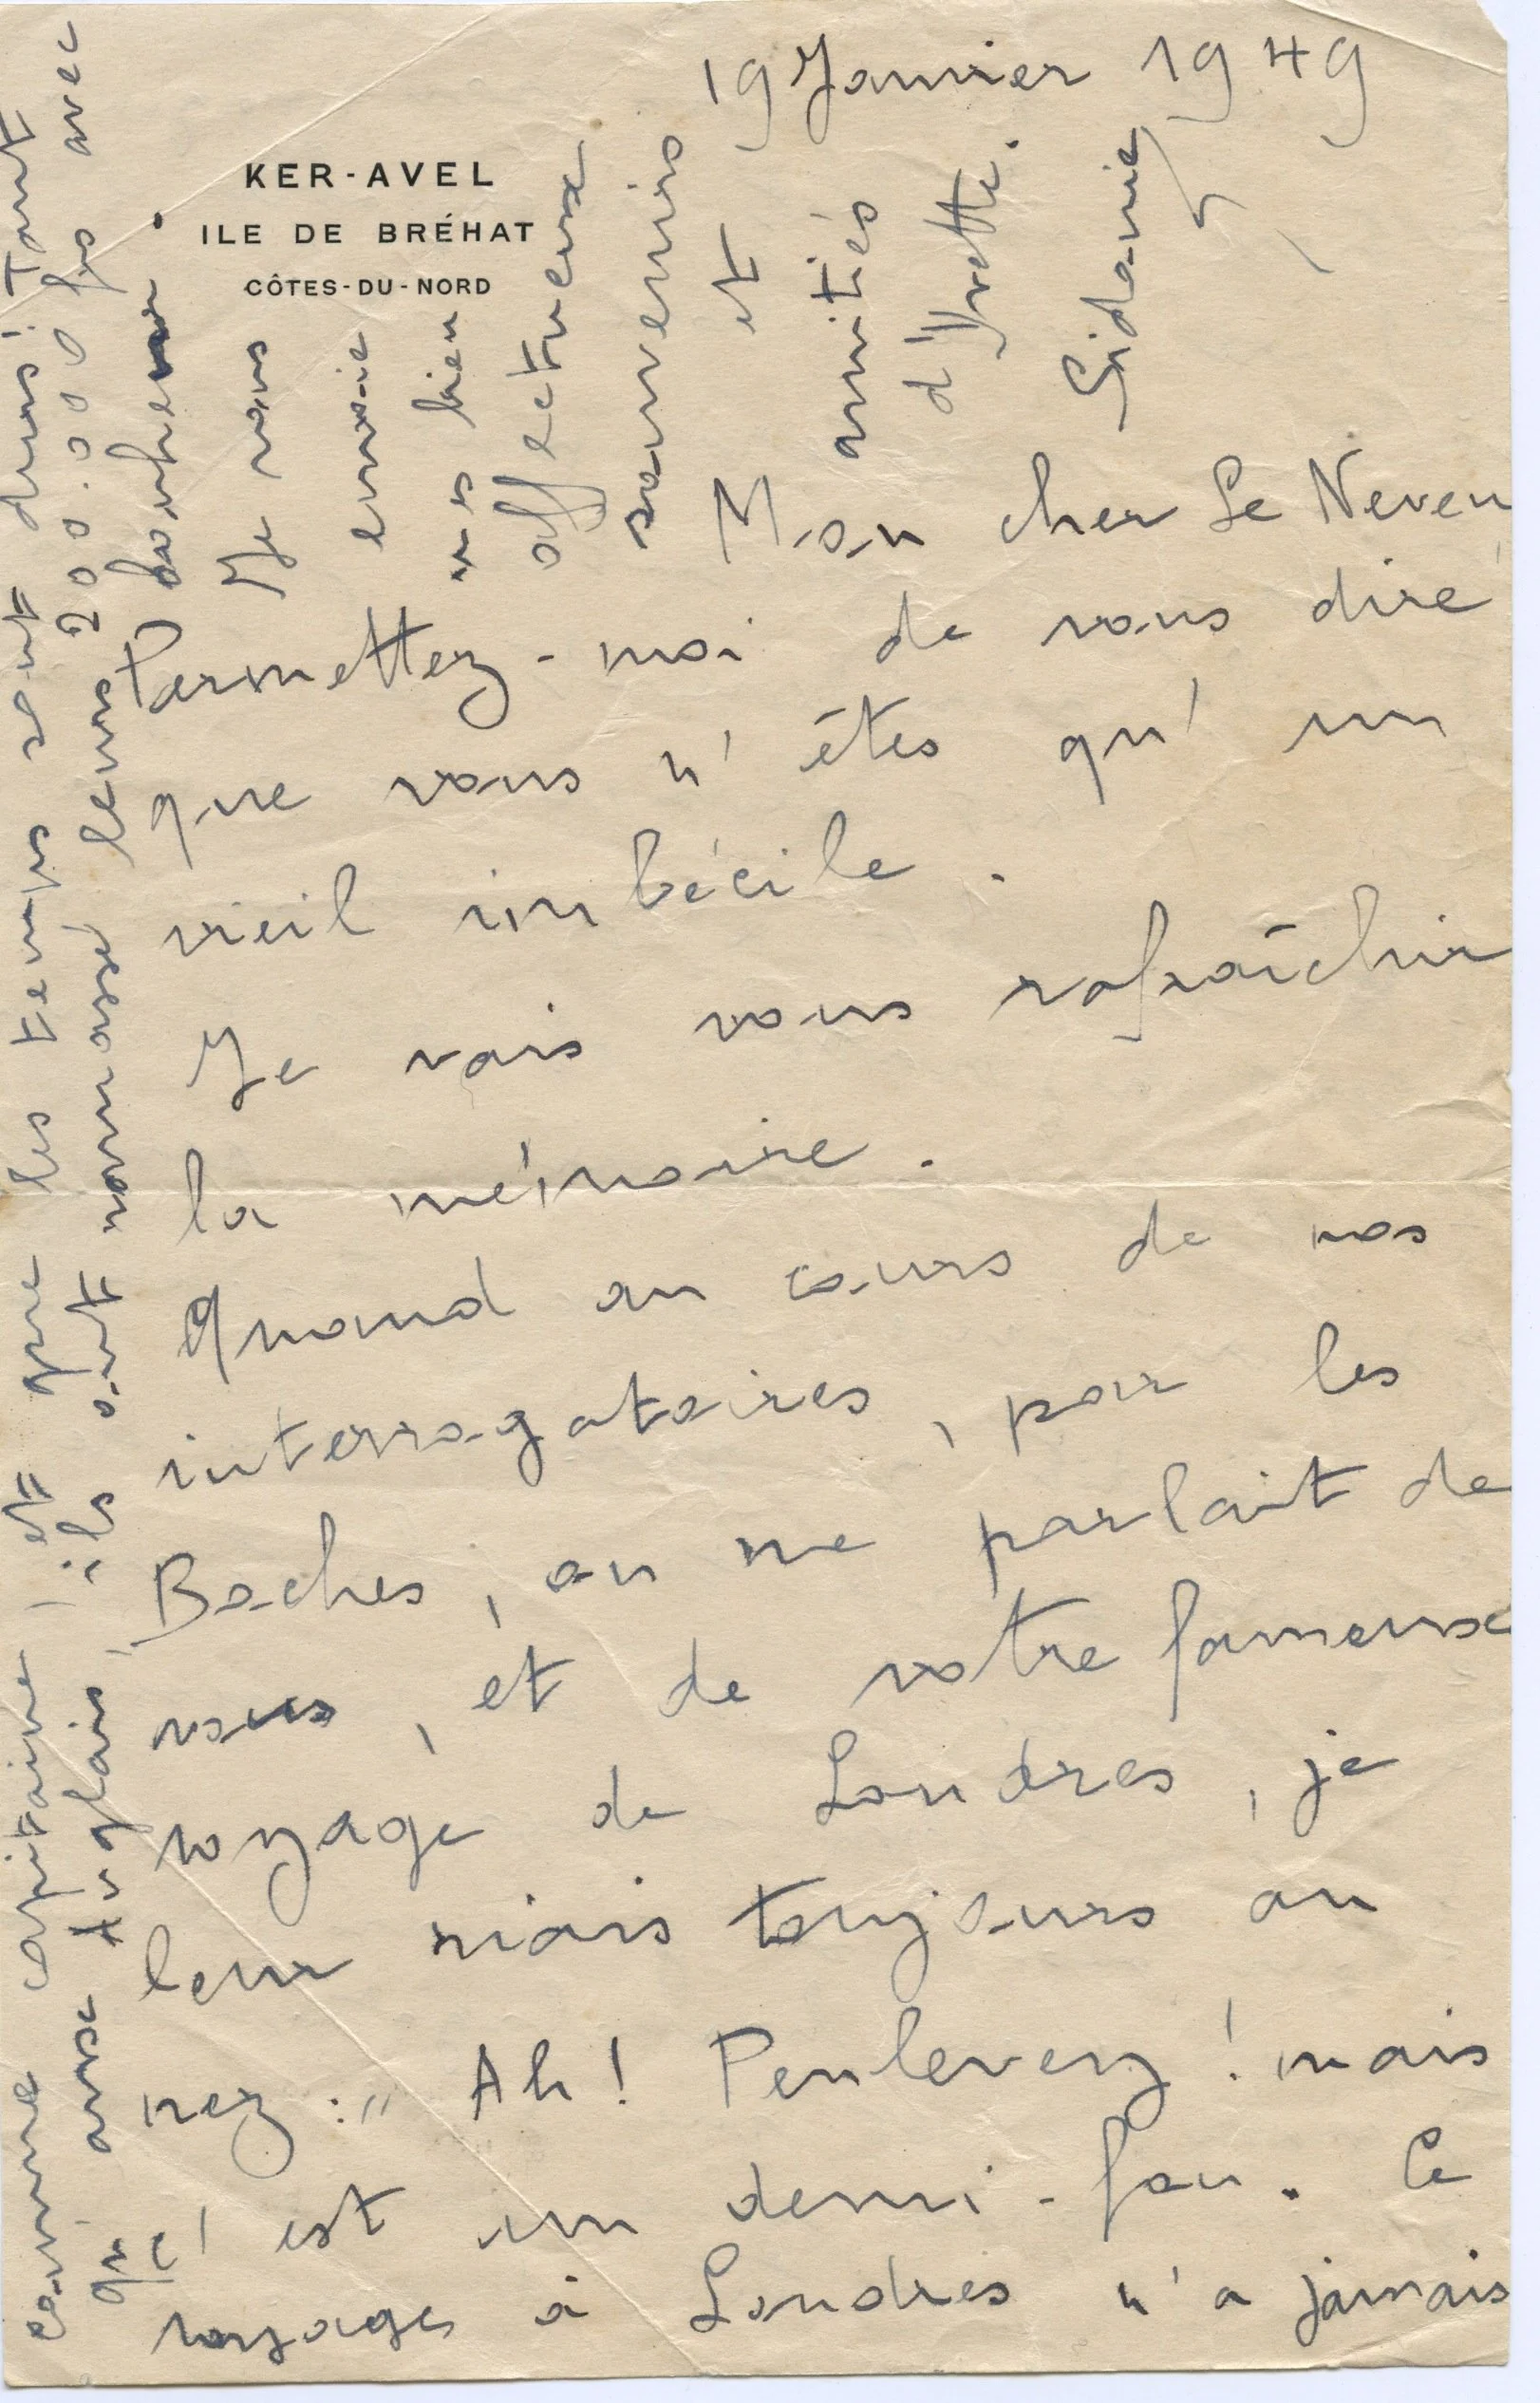 19 Janvier 1949
KER-AVEL
ILE DE BRÉHAT
CÔTES-DU-NORD
Mon cher Le Neven
Permettez-moi de vous dire
que vous n'êtes qu'un
vieil imbécile.
Je vais vous rafraîchir
la mémoire.
Quand au cours de nos
interrogatoires, par les
Boches, on me parlait de
vous, et de votre fameux
voyage de Londres, je
leur riais toujours au
nez : " Ah ! Penleverz ! mais
c'est un demi-fou. Ce
voyage à Londres n'a jamais
comme capitaine, et que les temps sont durs ! Tant
qu'aux Anglais, ils ont ramassé leurs 200.000 frs avec
bonheur.
Je vous
envoie
mes bien
affectueux
souvenirs
et
amitiés
d'Yvette.
Sidonie